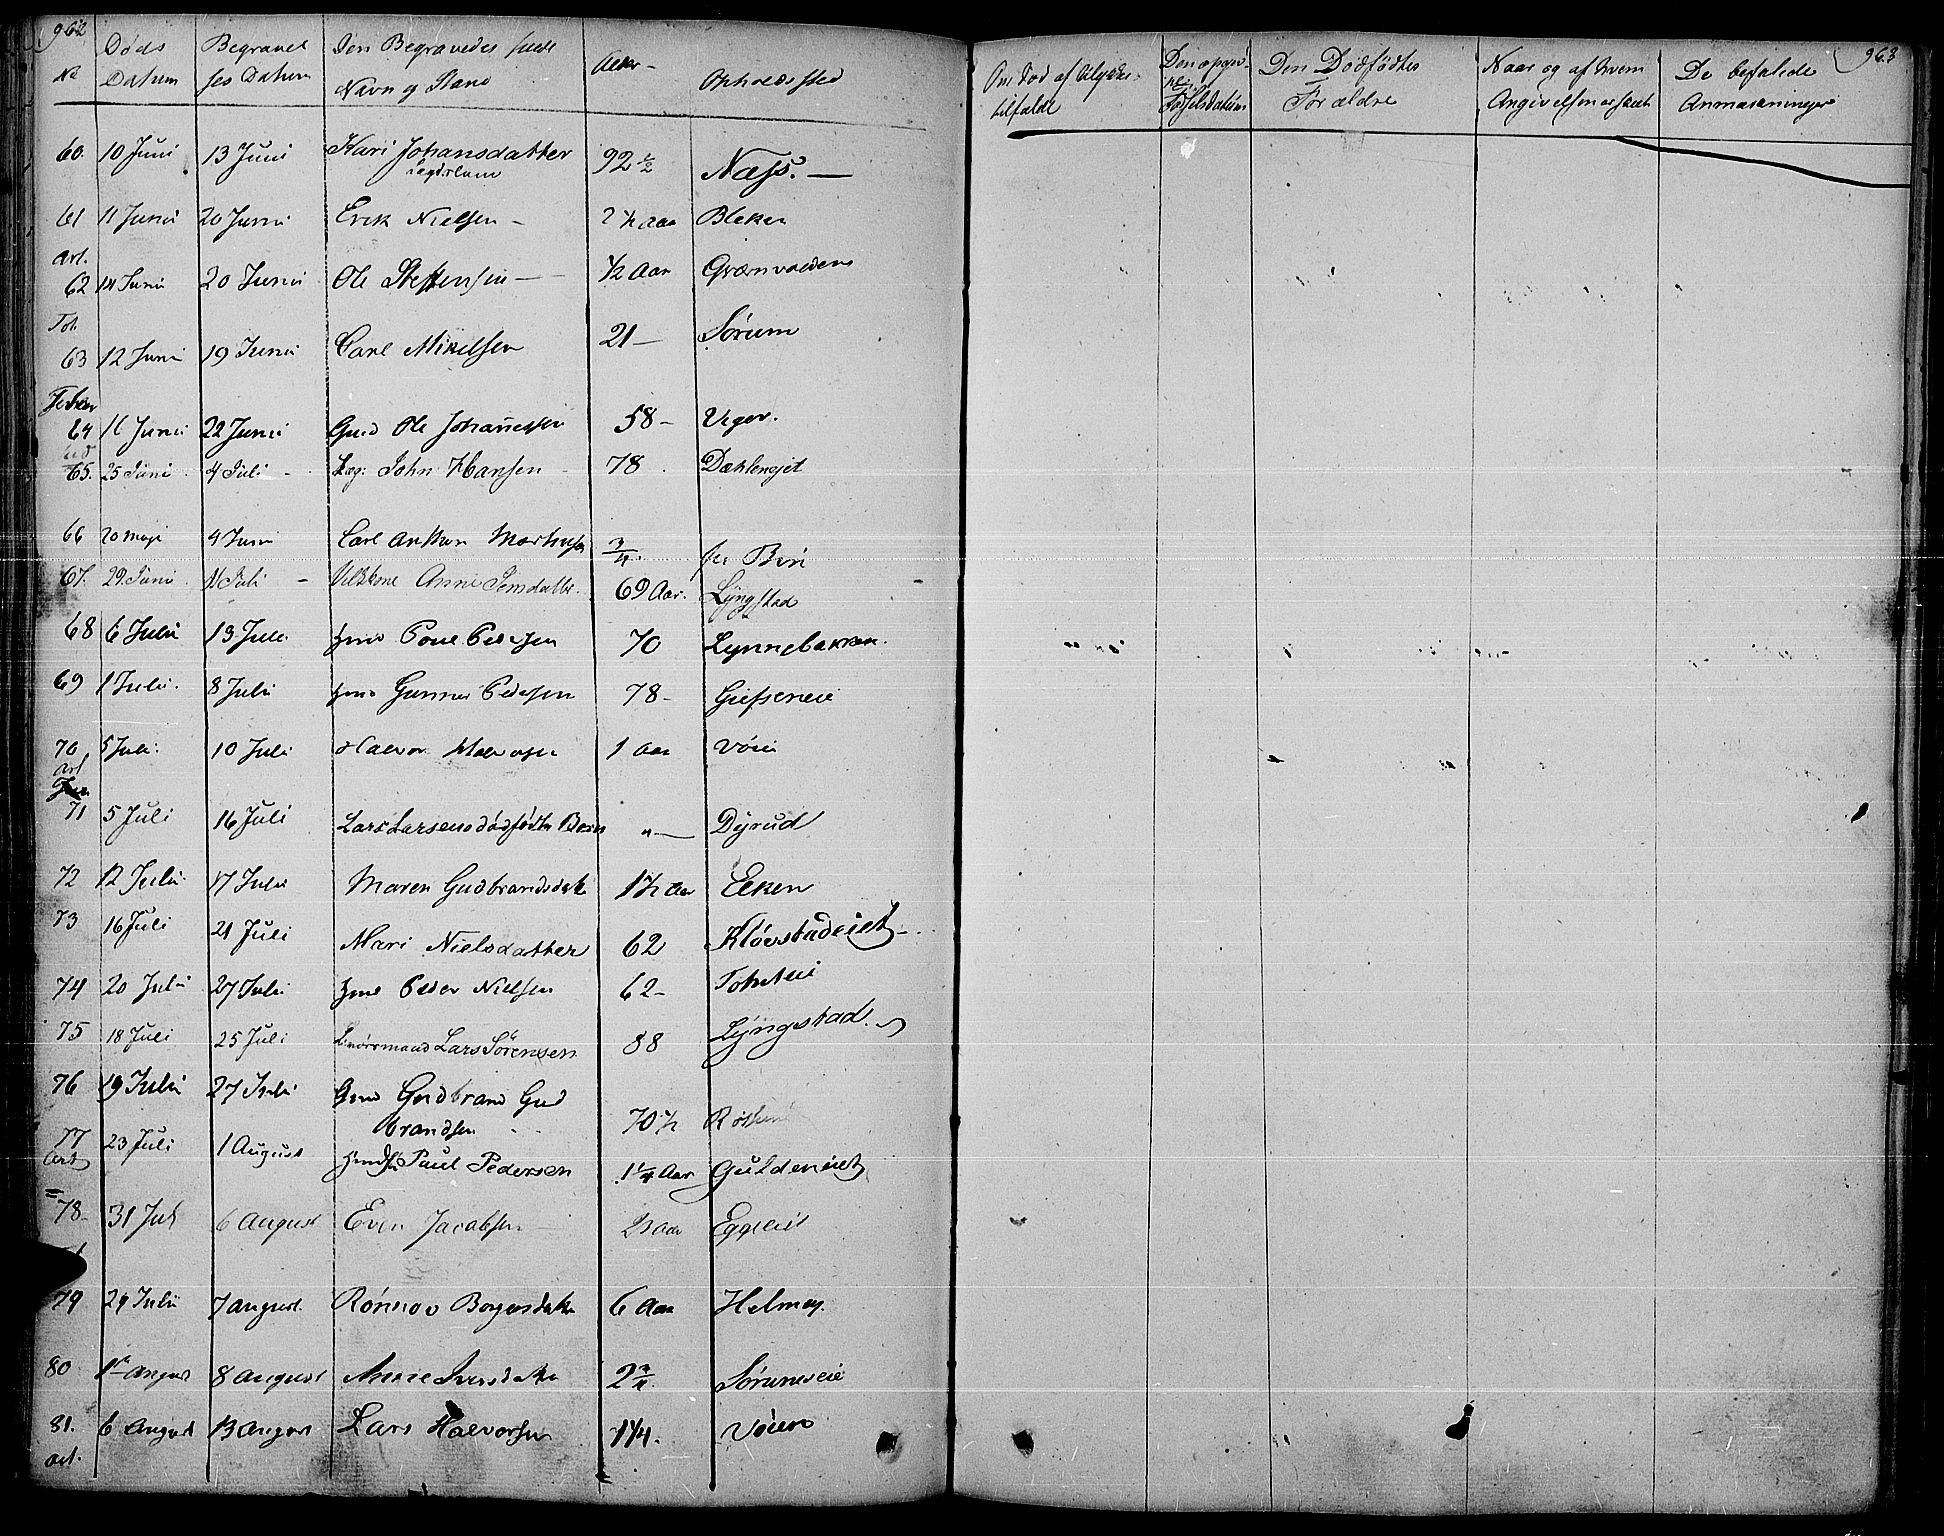 962
No
Døds Datum
Begravelses Datum
Den Begravedes fulde Navn og Stand
Alder
Opholdssted
60. 10 Juni 13 Juni Kari Johansdatter 92 1/2 Næss. —
Lægdslem
61 11 Juni 20 Juni Erik Nielsen - 2 1/2 Aar Bleken
Art.
62 14 Juni 20 Juni Ole Steffensen - 1/2 Aar Grænvolden
Tot.
63 12 Juni 19 Juni Carl Mikelsen 21 — Sørum
64 16 Juni 22 Juni Gmd Ole Johannessen 58 - Uger.
65. 25 Juni 4 Juli - Læg: John Hansen - 78. Dæhlenejet
66 20 Maji 4 Juni Carl Anthon 3/4. Biri
67. 29 Juni Juli - Anne Jensdatter. 69 Aar. Lyngstad
68 6 Juli 13 Juli Hmd Poul Pedersen 70 Lynnebakken.
69 1 Juli. 8 Juli Hmd Gunner Pedersen 78 - Giefseneie
70 5 Juli. 10 Juli Halvor Halvorsen 1 Aar Vøien
Art
71 5 Juli 16 Juli Lars Larsens dødfødte Barn " — Dyrud
72 12 Juli 17 Juli Maren Gudbrandsdatter 1 1/2 Aar Eeken
73 16 Juli 21 Juli Mari Nielsdatter 62 Kløvstadeiet
74 20 Juli 27 Juli Hmd Peder Nielsen 62 -
75 18 Juli 25 Juli Lars Sørensen 88 Lyngstad.
76 19 Juli 27 Juli Gmd Gudbrand Gud
brandsen 70 1/2
77 23 Juli 1 August Paul Pedersen 1 1/4 Aar Guldeneiet
Art
78 - 31 Juli 6 August Even Jacobsen - Aar Eggeeie
79 29 Juli 7 August. Rønnov Borgersdatter 6 Aar Helmey.
80 1ste August 8 August Anne Iversdatter 2 3/4. Sørumseie
81. 6 August 13 August Lars Halvorsen 1 1/4. Vøien
Art.
963
Om Død af Ulykkes-
tilfælde
Den opgivne
Fødselsdatum
Den Dødfødtes
Forældre
Naar og af hvem
Angivelsen er skeet
De befalede
Anmærkninger